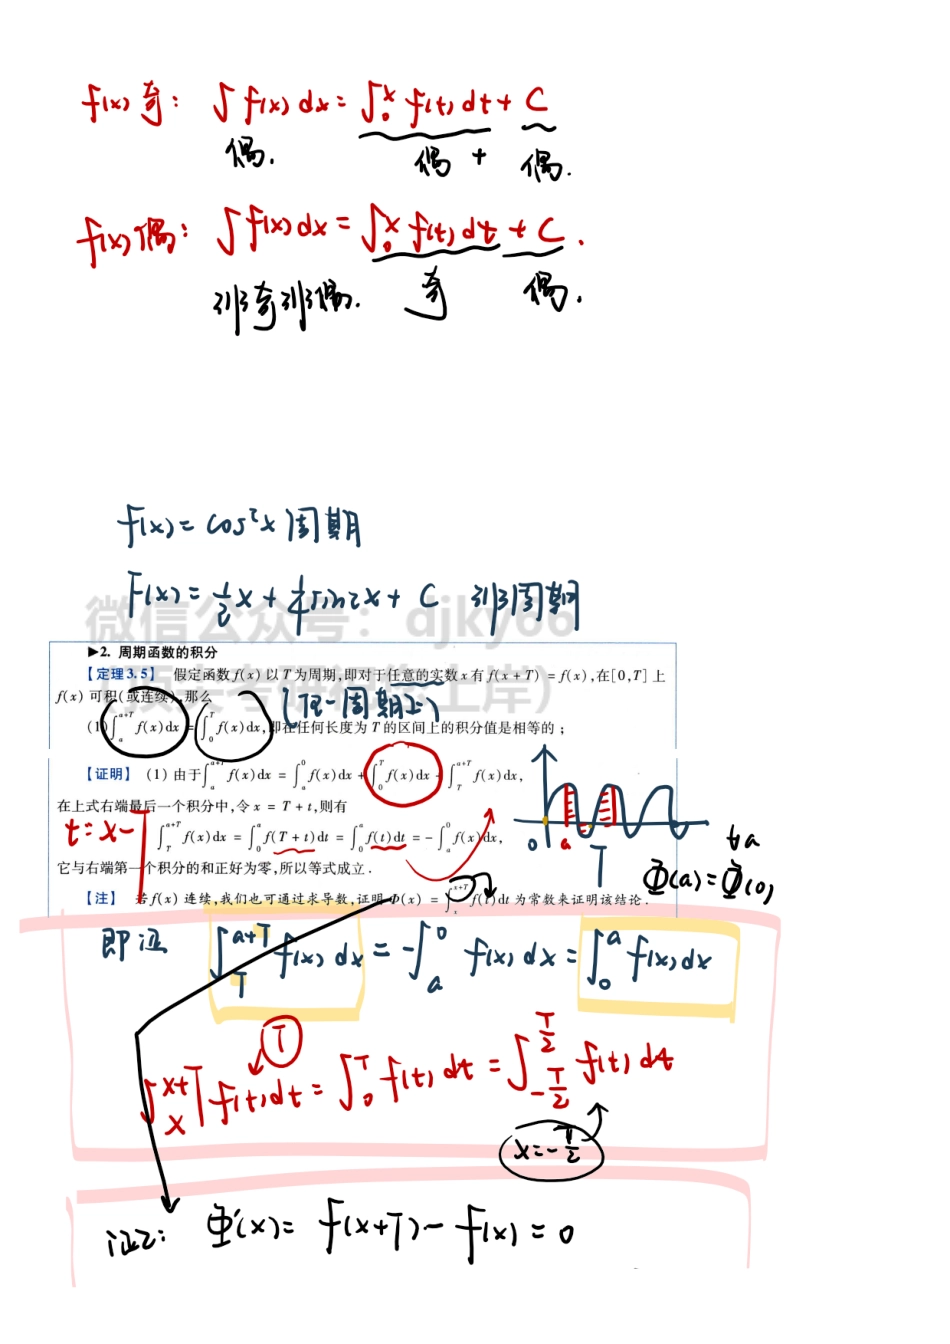 f(x)奇: ∫f(x)dx=∫₀ˣf(t)dt+C
偶. 偶 + 偶.
f(x)偶: ∫f(x)dx=∫₀ˣf(t)dt+C.
非奇非偶. 奇 偶.
f(x)=cos²x 周期
F(x)=½x+¼sin2x+C 非周期
微信公众号：djky66
▶2. 周期函数的积分
【定理3.5】 假定函数f(x)以T为周期,即对于任意的实数x有f(x+T)=f(x),在[0,T]上
f(x)可积(或连续),那么
(任一周期上)
(1)∫ₐᵃ⁺ᵀf(x)dx=∫₀ᵀf(x)dx,即在任何长度为T的区间上的积分值是相等的;
【证明】 (1)由于∫ₐᵃ⁺ᵀf(x)dx=∫ₐ⁰f(x)dx+∫₀ᵀf(x)dx+∫_T^{a+T}f(x)dx,
在上式右端最后一个积分中,令x=T+t,则有
t=x-T
∫_T^{a+T}f(x)dx=∫₀ᵃf(T+t)dt=∫₀ᵃf(t)dt=-∫ₐ⁰f(x)dx,
0 a T
它与右端第一个积分的和正好为零,所以等式成立.
∀a
Φ(a)=Φ(0)
【注】 若f(x)连续,我们也可通过求导数,证明Φ(x)=∫ₓˣ⁺ᵀf(t)dt为常数来证明该结论.
即证 ∫_T^{a+T}f(x)dx=-∫ₐ⁰f(x)dx=∫₀ᵃf(x)dx
T
∫ₓˣ⁺ᵀf(t)dt=∫₀ᵀf(t)dt=∫_{-T/2}^{T/2}f(t)dt
x=-T/2
证2: Φ'(x)=f(x+T)-f(x)=0